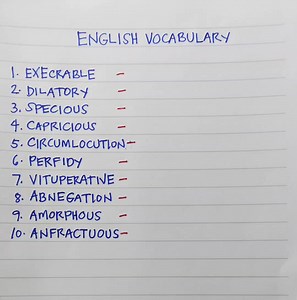 ENGLISH VOCABULARY
1. EXECRABLE -
2. DILATORY -
3. SPECIOUS -
4. CAPRICIOUS -
5. CIRCUMLOCUTION -
6. PERFIDY -
7. VITUPERATIVE -
8. ABNEGATION -
9. AMORPHOUS -
10. ANFRACTUOUS -